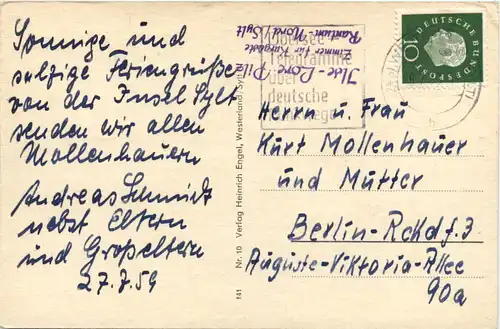 Sonnige und
salzige Feriengrüße
von der Insel Sylt
senden wir allen
Mollenhauern
Andreas Schmidt
nebst Eltern
und Großeltern
27.7.59
141 Nr. 10 Verlag Heinrich Engel, Westerland/Sylt
Übersee
Telegramme
über
deutsche
Ilse-Lore
Zimmer für Kurgäste
Rantum-Nord/Sylt
10
DEUTSCHE BUNDESPOST
Herrn u. Frau
Kurt Mollenhauer
und Mutter
Berlin-Rckdf. 3
Auguste-Viktoria-Allee
90a